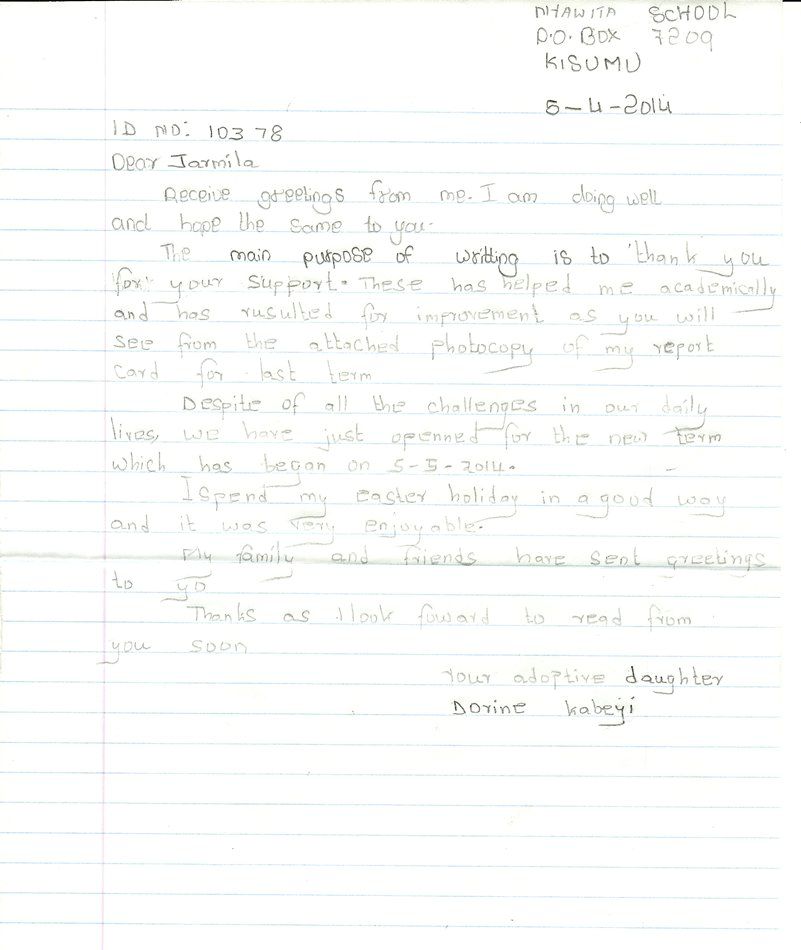 MAWITA SCHOOL
P.O. BOX 7209
KISUMU
5-4-2014
ID NO: 10378
Dear Jarmila
Receive greetings from me. I am doing well
and hope the same to you.
The main purpose of writting is to thank you
for your support. These has helped me academically
and has rusulted for improvement as you will
see from the attached photocopy of my report
card for last term
Despite of all the challenges in our daily
lives, we have just openned for the new term
which has began on 5-5-2014.
I spend my easter holiday in a good way
and it was very enjoyable.
My family and friends have sent greetings
to yo
Thanks as I look foward to read from
you soon
Your adoptive daughter
Dorine Kabeyi